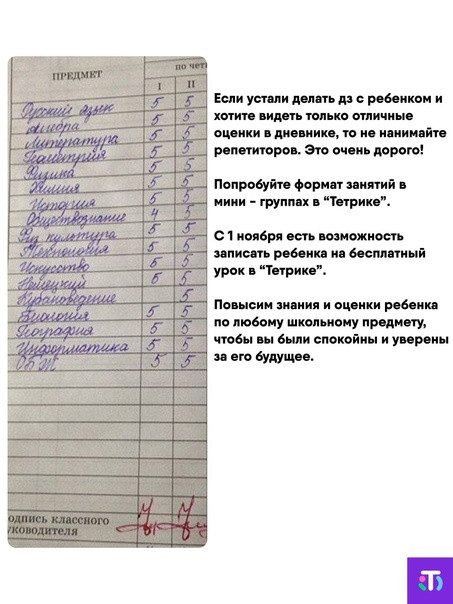 ПРЕДМЕТ
по чет
I II
Русский язык 5 5
Алгебра 5 5
Литература 5 5
Геометрия 5 5
Физика 5 5
Химия 5 5
История 5 5
Обществознание 4 5
Физ культура 5 5
Технология 5 5
Искусство 5 5
Немецкий 5 5
Кубановедение 5
Биология 5 5
География 5 5
Информатика 5 5
ОБЖ 5 5
одпись классного
уководителя
Если устали делать дз с ребенком и
хотите видеть только отличные
оценки в дневнике, то не нанимайте
репетиторов. Это очень дорого!
Попробуйте формат занятий в
мини - группах в “Тетрике”.
С 1 ноября есть возможность
записать ребенка на бесплатный
урок в “Тетрике”.
Повысим знания и оценки ребенка
по любому школьному предмету,
чтобы вы были спокойны и уверены
за его будущее.